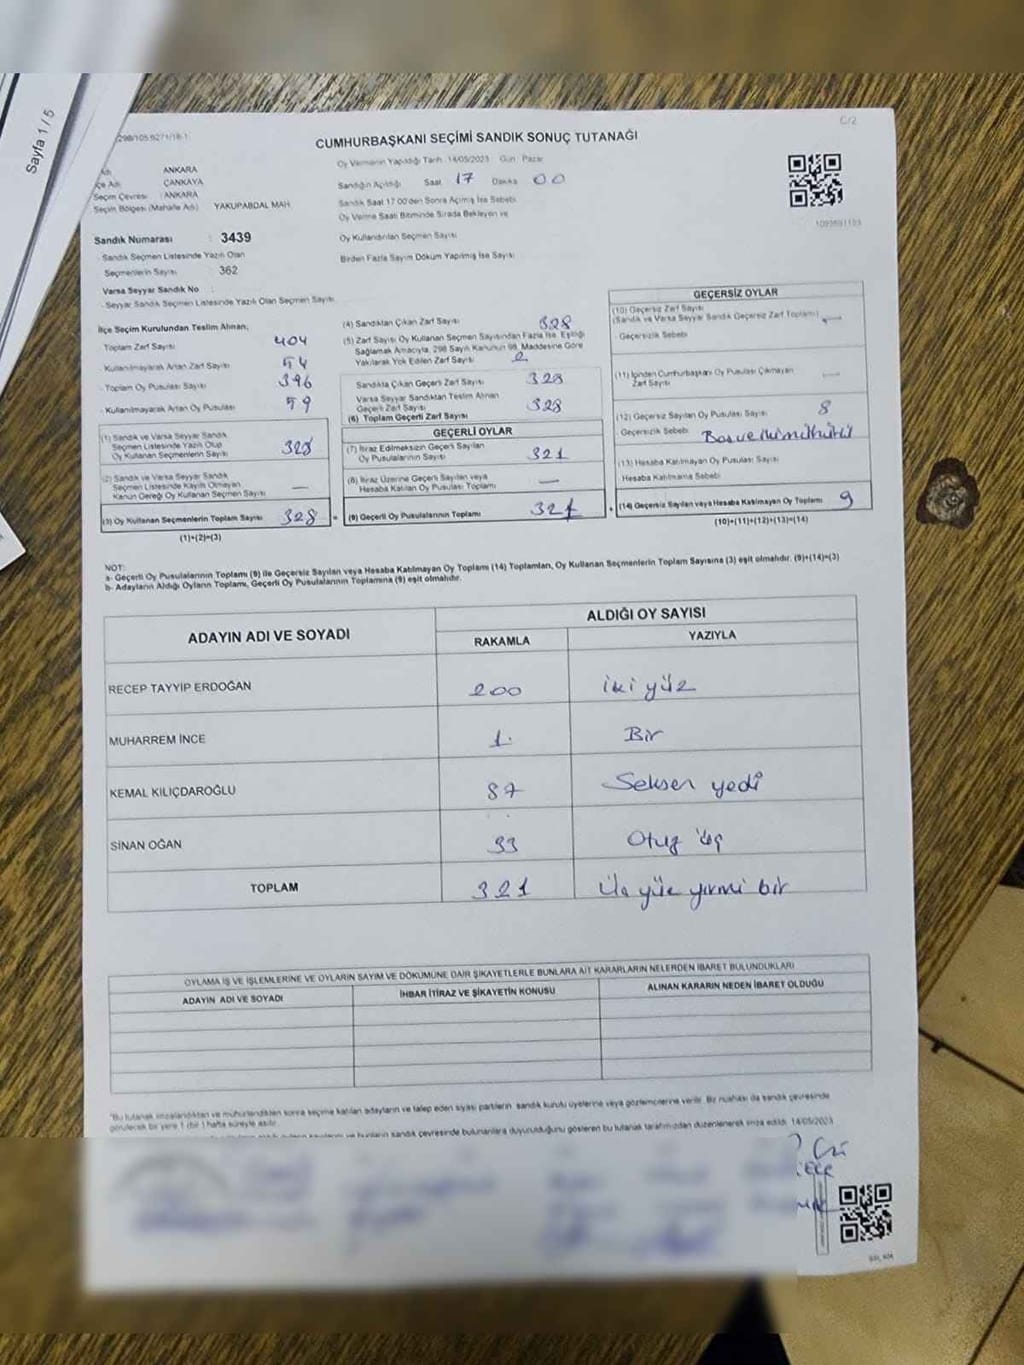 Sayfa 1 / 5
C/2
CUMHURBAŞKANI SEÇİMİ SANDIK SONUÇ TUTANAĞI
ANKARA
ÇANKAYA
Seçim Çevresi : ANKARA
Seçim Bölgesi (Mahalle Adı) YAKUPABDAL MAH.
Sandık Numarası : 3439
Sandık Seçmen Listesinde Yazılı Olan
Seçmenlerin Sayısı : 362
Varsa Seyyar Sandık No :
Seyyar Sandık Seçmen Listesinde Yazılı Olan Seçmen Sayısı
Oy Vermenin Yapıldığı Tarih 14/05/2023 Gün Pazar
Sandığın Açıldığı Saat 17 Dakika 00
Sandık Saat 17.00'den Sonra Açılmış İse Sebebi
Oy Verme Saati Bitiminde Sırada Bekleyen ve
Oy Kullandırılan Seçmen Sayısı
Birden Fazla Sayım Döküm Yapılmış İse Sayısı
İlçe Seçim Kurulundan Teslim Alınan;
Toplam Zarf Sayısı 404
Kullanılmayarak Artan Zarf Sayısı 54
Toplam Oy Pusulası Sayısı 396
Kullanılmayarak Artan Oy Pusulası 59
(1) Sandık ve Varsa Seyyar Sandık
Seçmen Listesinde Yazılı Olup
Oy Kullanan Seçmenlerin Sayısı 328
(2) Sandık ve Varsa Seyyar Sandık
Seçmen Listesinde Kayıtlı Olmayan
Kanun Gereği Oy Kullanan Seçmen Sayısı —
(3) Oy Kullanan Seçmenlerin Toplam Sayısı 328 =
(1)+(2)=(3)
(4) Sandıktan Çıkan Zarf Sayısı 328
(5) Zarf Sayısı Oy Kullanan Seçmen Sayısından Fazla İse, Eşitliği
Sağlamak Amacıyla, 298 Sayılı Kanunun 98. Maddesine Göre
Yakılarak Yok Edilen Zarf Sayısı
Sandıkta Çıkan Geçerli Zarf Sayısı 328
Varsa Seyyar Sandıktan Teslim Alınan
Geçerli Zarf Sayısı
(6) Toplam Geçerli Zarf Sayısı 328
GEÇERLİ OYLAR
(7) İtiraz Edilmeksizin Geçerli Sayılan
Oy Pusulalarının Sayısı 321
(8) İtiraz Üzerine Geçerli Sayılan veya
Hesaba Katılan Oy Pusulası Toplamı —
(9) Geçerli Oy Pusulalarının Toplamı 321 +
GEÇERSİZ OYLAR
(10) Geçersiz Zarf Sayısı
(Sandık ve Varsa Seyyar Sandık Geçersiz Zarf Toplamı) —
Geçersizlik Sebebi
(11) İçinden Cumhurbaşkanı Oy Pusulası Çıkmayan
Zarf Sayısı —
(12) Geçersiz Sayılan Oy Pusulası Sayısı 8
Geçersizlik Sebebi
(13) Hesaba Katılmayan Oy Pusulası Sayısı
Hesaba Katılmama Sebebi
(14) Geçersiz Sayılan veya Hesaba Katılmayan Oy Toplamı 9
(10)+(11)+(12)+(13)=(14)
NOT:
a- Geçerli Oy Pusulalarının Toplamı (9) ile Geçersiz Sayılan veya Hesaba Katılmayan Oy Toplamı (14) Toplamları, Oy Kullanan Seçmenlerin Toplam Sayısına (3) eşit olmalıdır. (9)+(14)=(3)
b- Adayların Aldığı Oyların Toplamı, Geçerli Oy Pusulalarının Toplamına (9) eşit olmalıdır.
ADAYIN ADI VE SOYADI ALDIĞI OY SAYISI
RAKAMLA YAZIYLA
RECEP TAYYİP ERDOĞAN 200 iki yüz
MUHARREM İNCE 1. Bir
KEMAL KILIÇDAROĞLU 87 Seksen yedi
SİNAN OĞAN 33 Otuz üç
TOPLAM 321 Üç yüz yirmi bir
OYLAMA İŞ VE İŞLEMLERİNE VE OYLARIN SAYIM VE DÖKÜMÜNE DAİR ŞİKAYETLERLE BUNLARA AİT KARARLARIN NELERDEN İBARET BULUNDUKLARI
ADAYIN ADI VE SOYADI İHBAR İTİRAZ VE ŞİKAYETİN KONUSU ALINAN KARARIN NEDEN İBARET OLDUĞU
"Bu tutanak imzalandıktan ve mühürlendikten sonra seçime katılan adayların ve talep eden siyasi partilerin sandık kurulu üyelerine veya gözlemcilerine verilir. Bir nüshası da sandık çevresinde
görülecek bir yere 1 (bir) hafta süreyle asılır.
ve bunların sandık çevresinde bulunanlara duyurulduğunu gösteren bu tutanak tarafımızdan düzenlenerek imza edildi. 14/05/2023